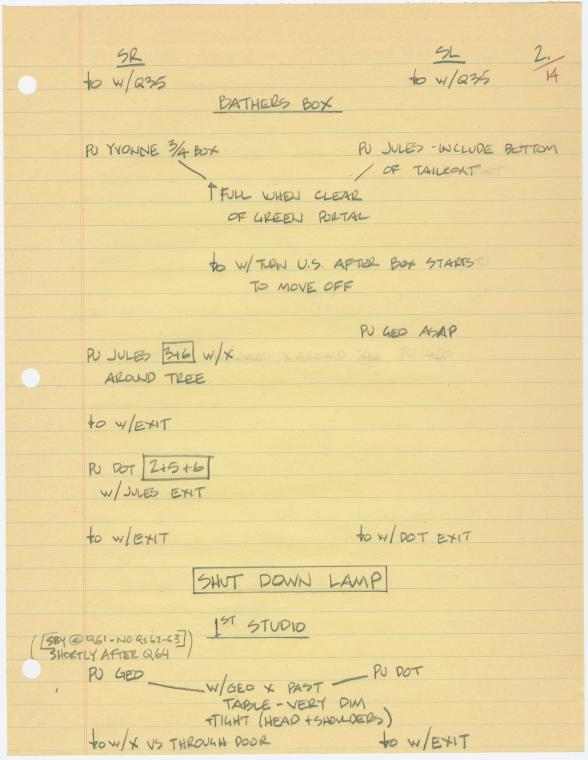 SR SL 2/14
↓o w/Q35 ↓o w/Q35
BATHERS BOX
PU YVONNE 3/4 BOX PU JULES - INCLUDE BOTTOM
OF TAILCOAT
↑FULL WHEN CLEAR
OF GREEN PORTAL
↓o w/TURN U.S. AFTER BOX STARTS
TO MOVE OFF
PU GEO ASAP
PU JULES 3+6 w/X
AROUND TREE
↓o w/EXIT
PU DOT 2+5+6
w/JULES EXIT
↓o w/EXIT ↓o w/DOT EXIT
SHUT DOWN LAMP
1ST STUDIO
([SBY @ Q61-NO Qs 62-63])
SHORTLY AFTER Q64
PU GEO PU DOT
w/GEO X PAST
TABLE - VERY DIM
+TIGHT (HEAD + SHOULDERS)
↓o w/X US THROUGH DOOR ↓o w/EXIT